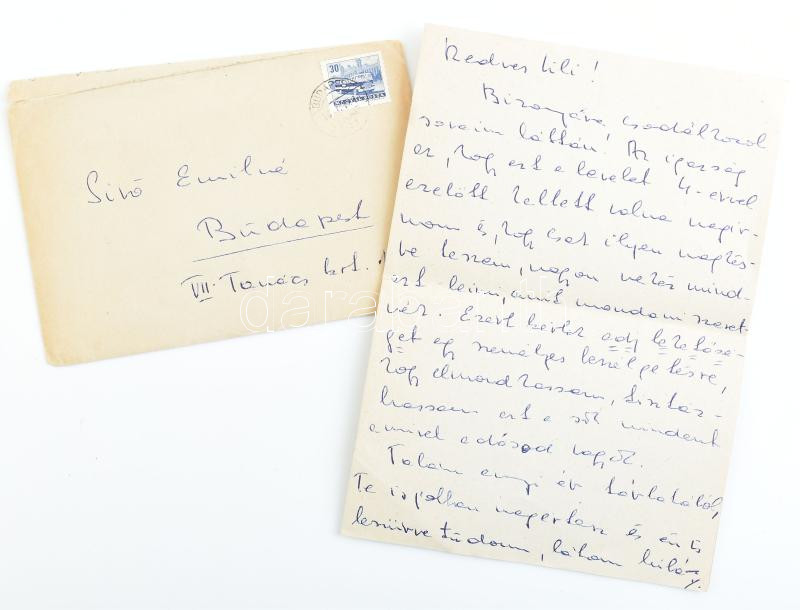 30
MAGYAR POSTA
Sivó Emilné
Budapest
VII. Tanács krt.
Kedves Lili!
Bizonyára csodálkozol
soraim láttán. Az igazság
az, hogy ezt a levelet 4 évvel
ezelőtt kellett volna megír-
nom és, hogy csak ilyen megkés-
ve teszem, nagyon nehéz mind-
ezt leírni, amit mondani szeret-
nék. Ezért kérlek adj lehetősé-
get egy személyes beszélgetésre,
hogy elmondhassam, tisztáz-
hassam ezt a sok mindent
amivel adósod vagyok.
Talán ennyi év távlatából,
Te is jobban megértesz és én is
leszűrve tudom, látom
darabanth